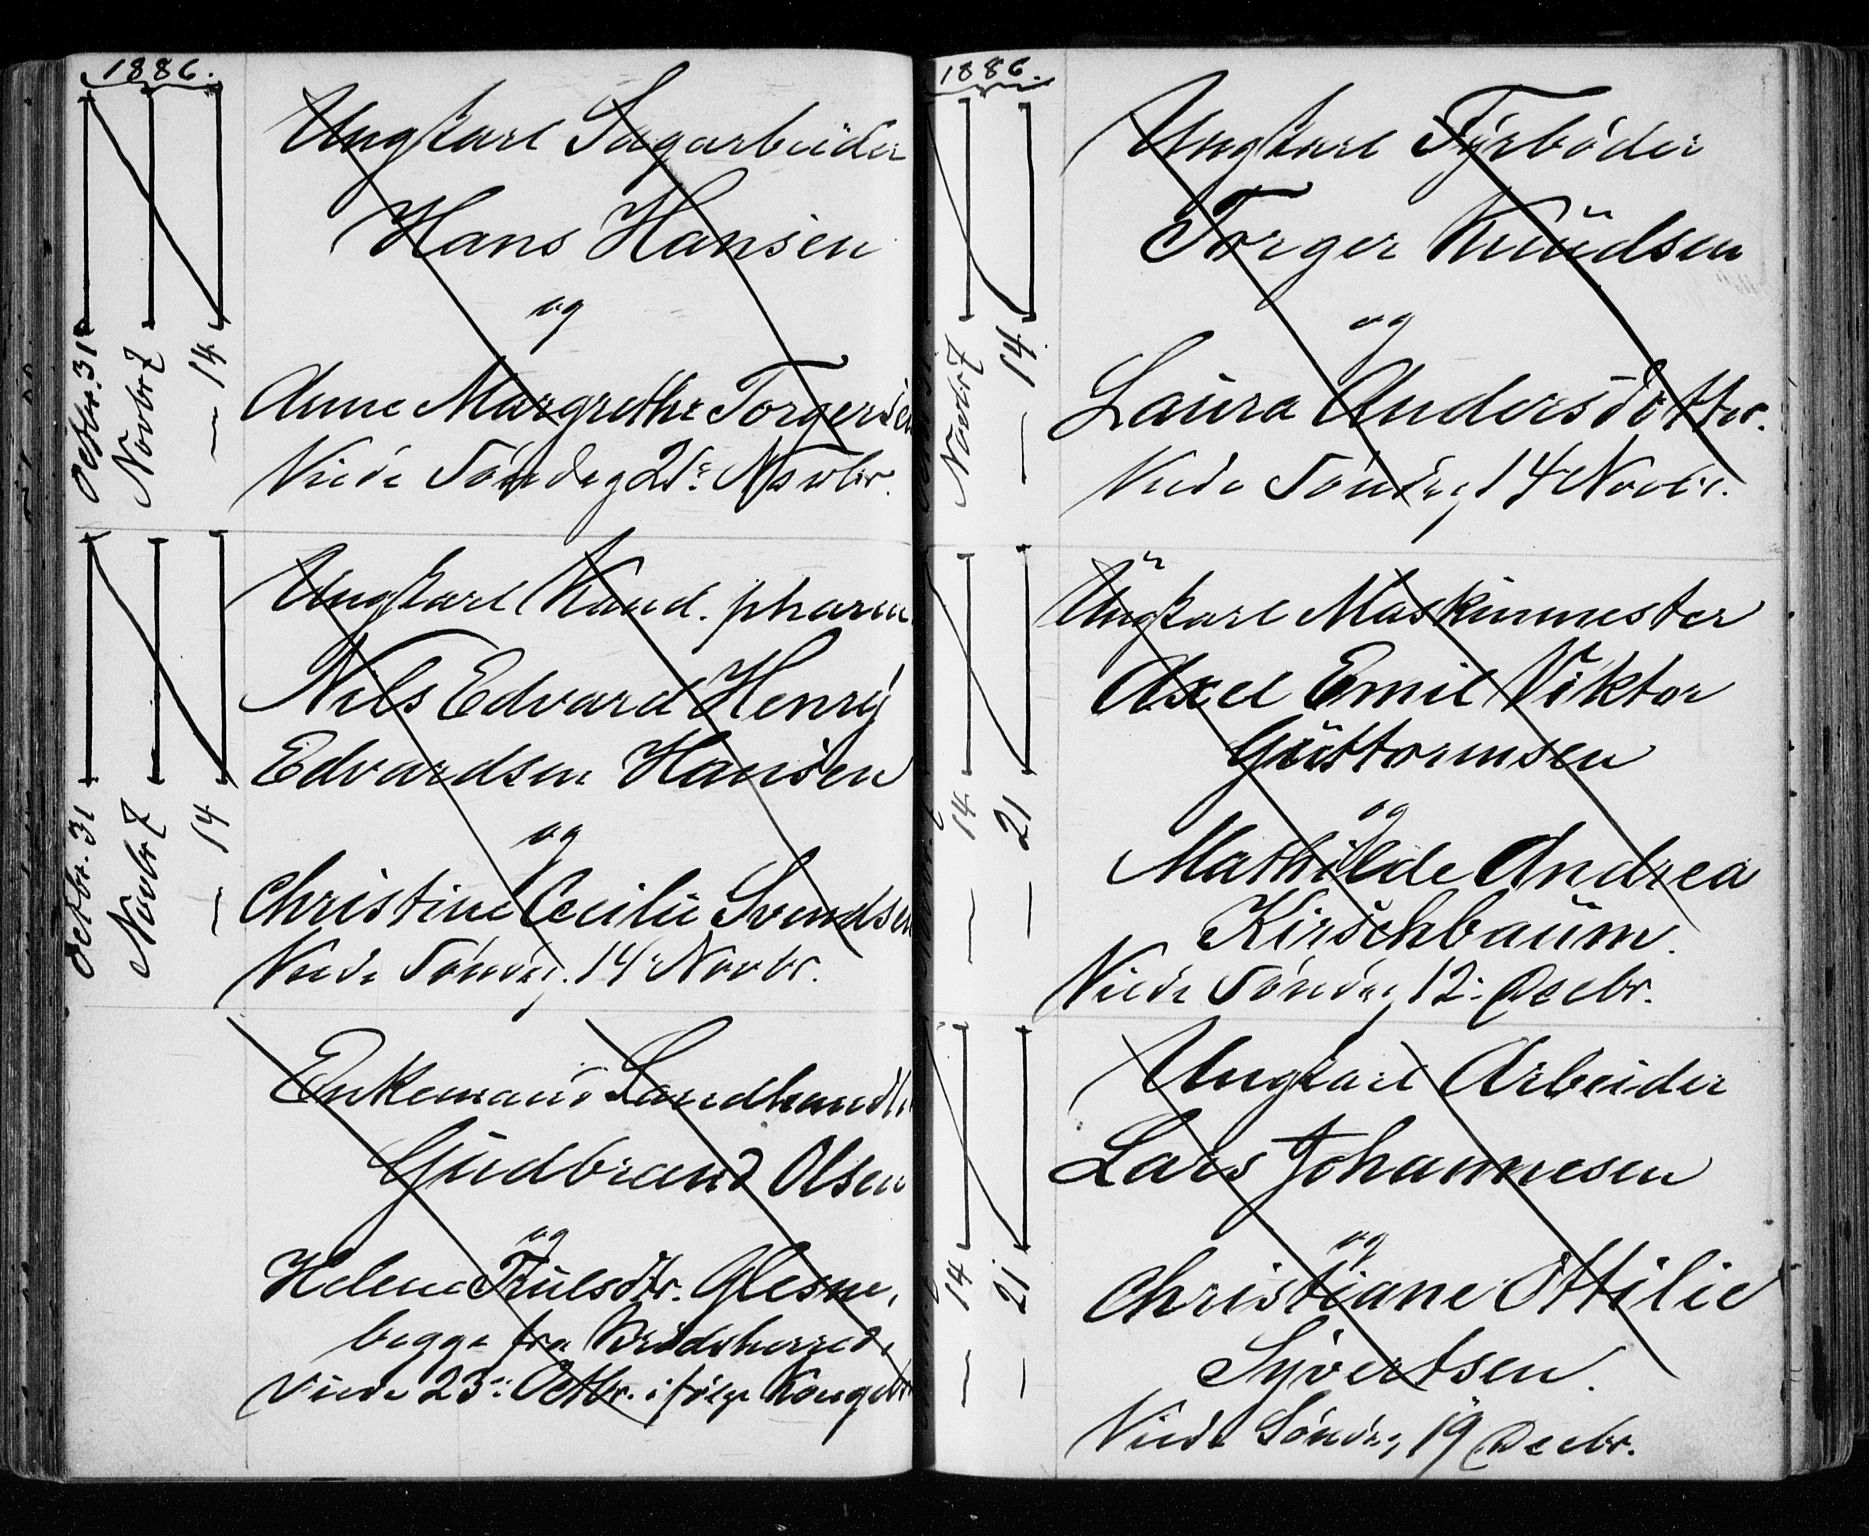 1886.
Octbr. 31
Novbr 7
— 14
Ungkarl Sagarbeider
Hans Hansen
og
Anne Margrethe Torgersen
Viede Söndag 21de Novbr.
Octbr. 31
Novbr 7
— 14
Ungkarl Kand. pharm
Nils Edvard Henry
Edvardsen Hansen
og
Christine Cecilie Svendsen
Viede Söndag 14 Novbr.
Enkemand Landhandl
Gudbrand Olsen
og
Helene Trulsdtr. Glesne,
begge fra Krödsherred,
viede 23de Octbr. i følge Kongebr
1886.
Novbr 7
— 14
Ungkarl Fyrbøder
Torger Knudsen
og
Laura Andersdotter.
Viede Söndag 14 Novbr.
— 14
— 21
Ungkarl Maskinmester
Axel Emil Viktor
Guttormsen
og
Mathilde Andrea
Kirschbaum.
Viede Söndag 12te Decbr.
— 14
— 21
Ungkarl Arbeider
Lars Johannesen
og
Christiane Ottilie
Syvertsen.
Viede Söndag 19 Decbr.